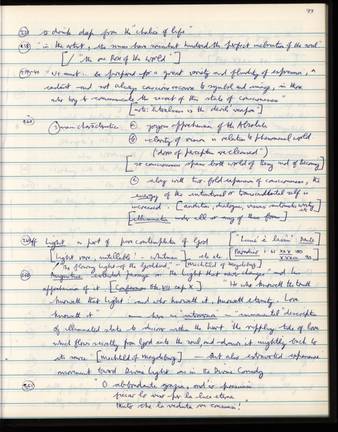 99
to drink deep from the chalice of life"
"in the artist, the senses have somewhat hindered the perfect of the soul
[/ "the one Rose of the world"]
"We must be prepared for a great variety and fluidity of expression, a
constant and not always conscious recourse to symbol and image, in those
who try to communicate the secret of this state of consciousness"
[note: literalism is the devil's weapon]
3 main characteristics (a) joyous apprehension of the Absolute
(b) clarity of vision in relation to phenomenal world
(doors of perception are cleansed)
[so consciousness spans both world of Being and of becoming]
(c) along with this 2-fold expansion of consciousness, the
energy of the intuitional or transcendental self is
increased. [audition, dialogues, visions, automatic writing etc]
[illumination under all or any of these forms]
ff Light a part of pure contemplation of God
["Lume è lassù" Dante
[light rare, untellable - Whitman] etc etc
Paradiso 1. 61 xxx 100
"The flowing light of the Godhead" - [Mechthild of Magdeburg]
Augustine's extended passage on "the Light that never changes" and his
apprehension of it [Confessions Bk VII cap X.] "He who knoweth the truth
knoweth that light: and who knoweth it, knoweth eternity. Love
knoweth it" — immemorial description
of illuminated state to discern within the heart the rippling tide of love
which flows secretly from God into the soul, and draws it mightily back to
its source [Mechthild of Magdeburg] - that also extroverted experience
movement toward Divine Light are in the Divine Comedy
"O abbondante grazia, ond' io presunsi
ficcar lo viso per la luce eterna
tanto che la veduta vi consunsi!